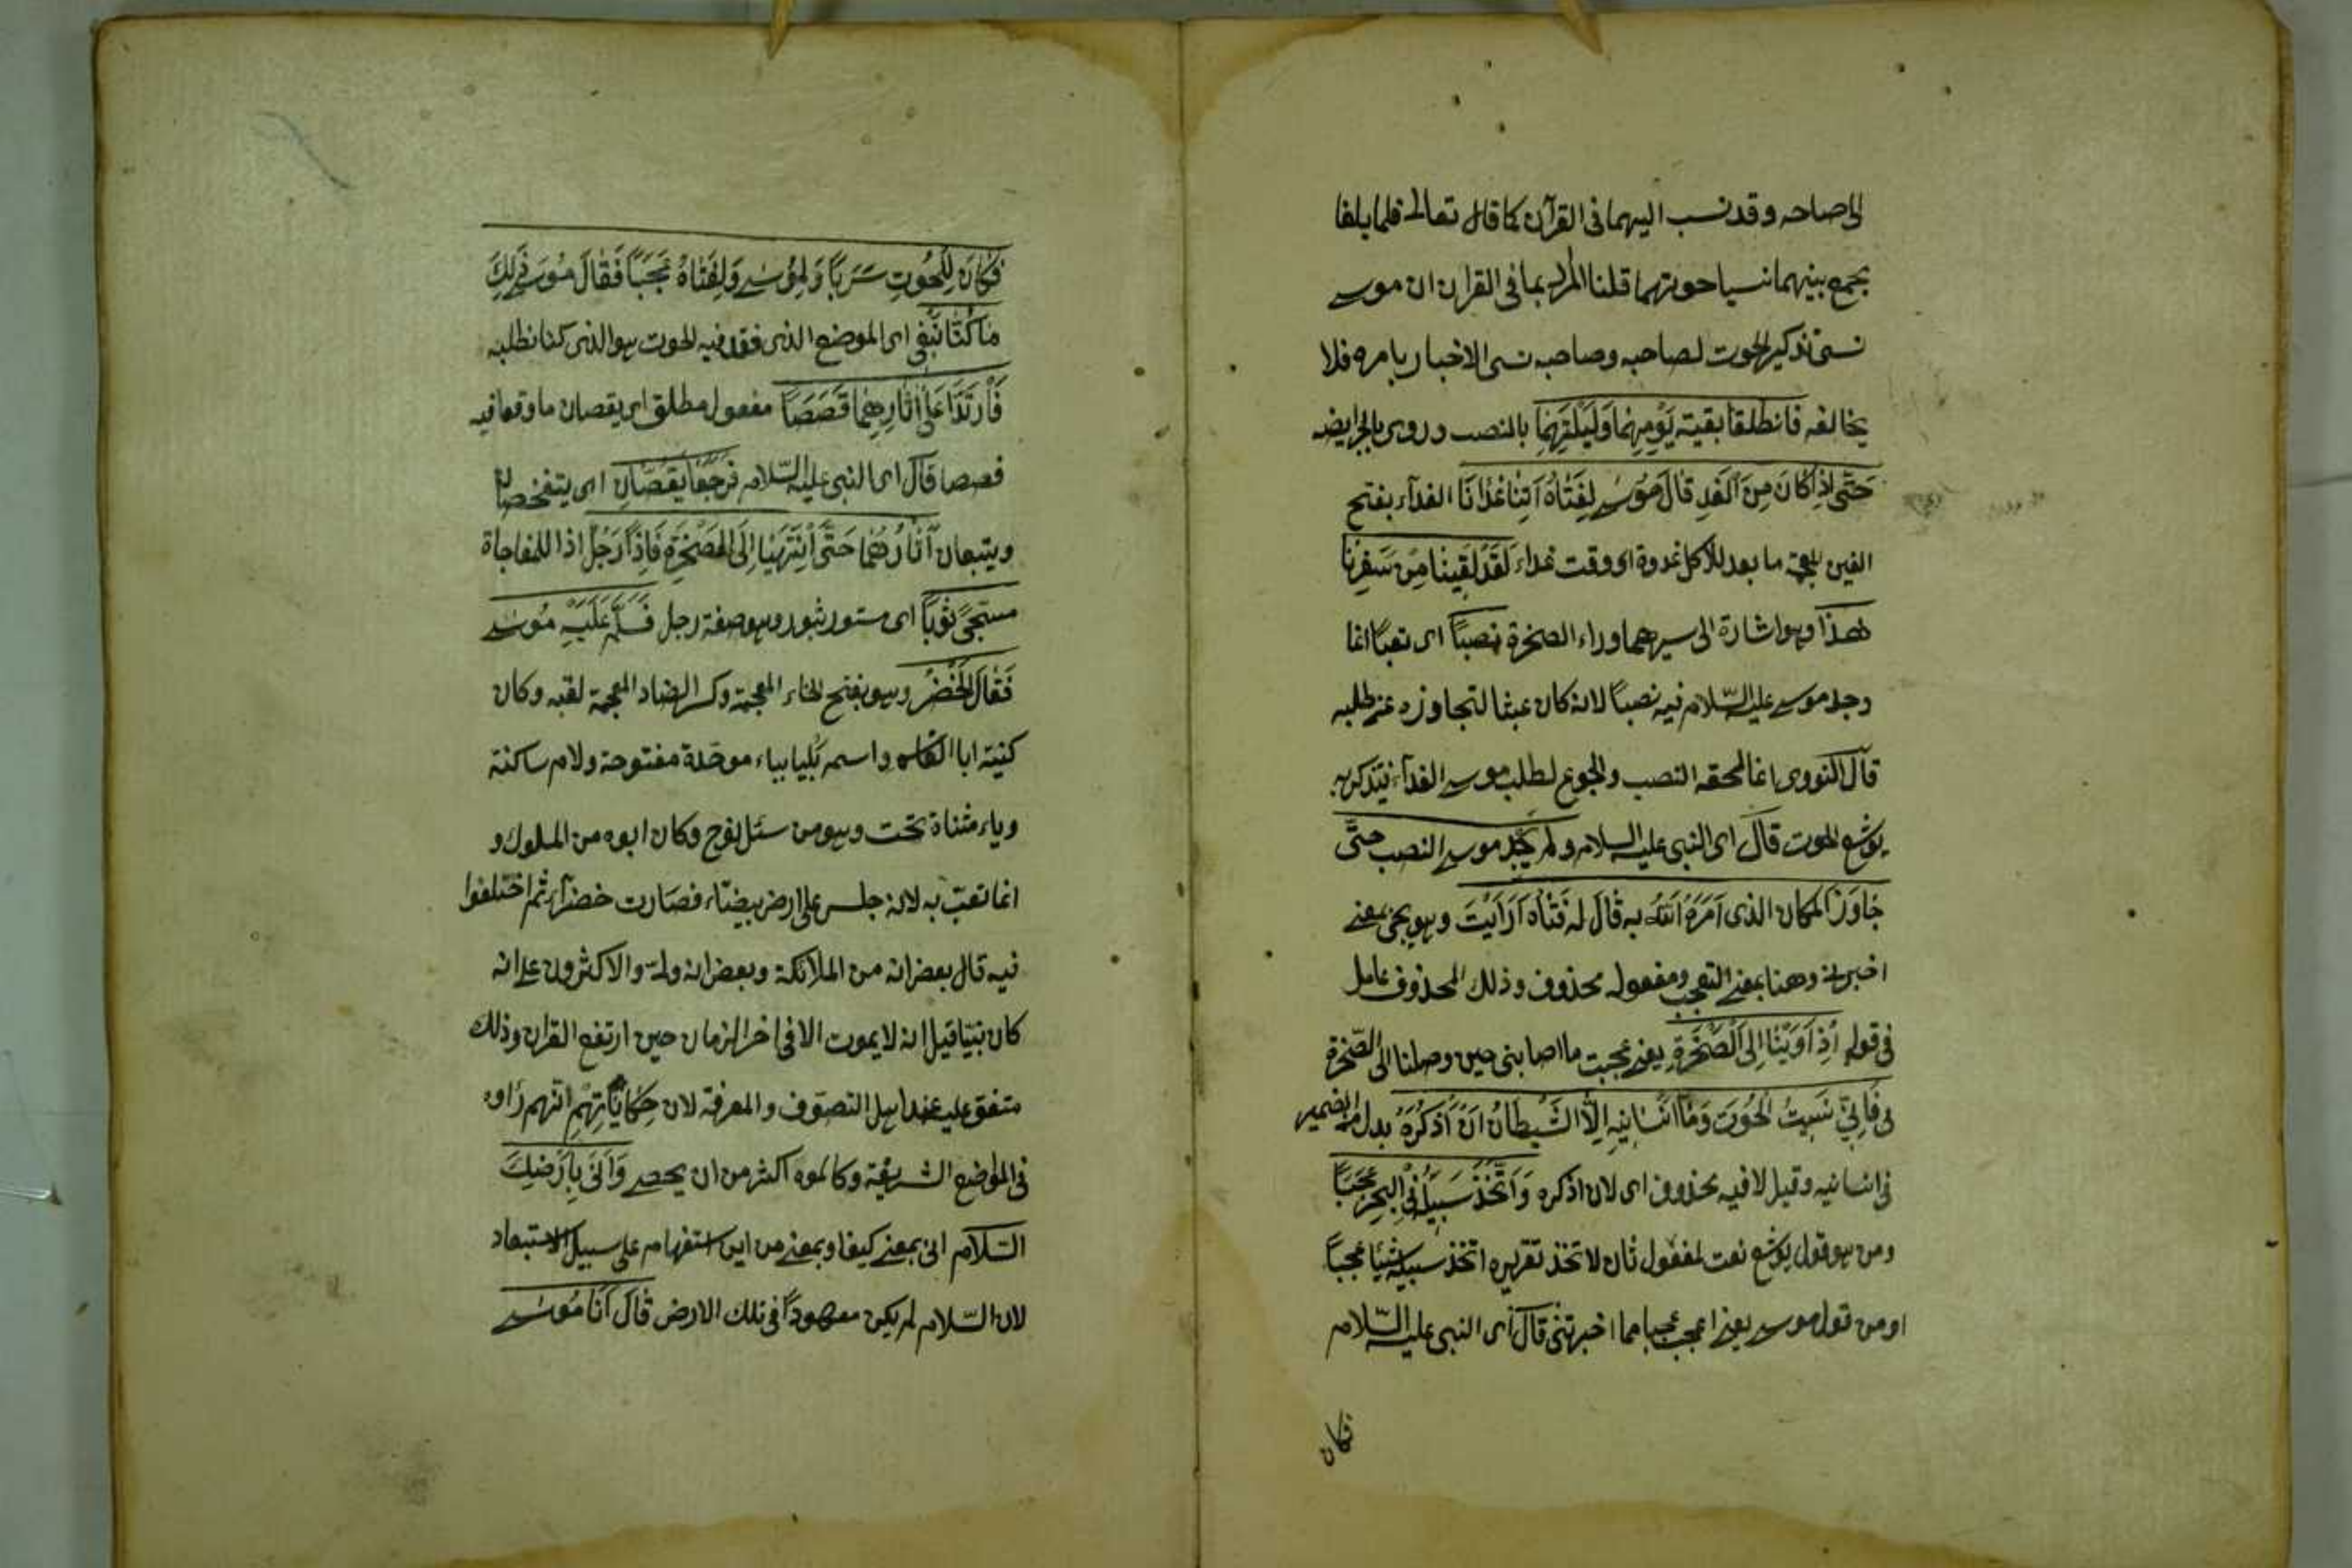 الى صاحبه وقد نسب اليهما فى القرآن كما قال تعالى فلما بلغا
مجمع بينهما نسيا حوتهما قلنا المراد بما فى القران ان موسى
نسى تذكير الحوت لصاحبه وصاحبه نسى الاخبار بامره فلا
يخالفه فَانطَلَقَا بقيته يَوْمِهِمَا وَلَيْلَتِهِمَا بالنصب وروى بالجر ايضا
حَتّٰى اِذَا كَانَ مِنَ الْغَدِ قَالَ مُوسٰى لِفَتَاهُ اٰتِنَا غَدَانَا الغدآء بفتح
الغين المعجمة ما يعد للاكل غدوة او وقت غداء لَقَدْ لَقِينَا مِنْ سَفَرِنَا
هٰذَا وهو اشارة الى سيرهما وراء الصخرة نَصَبًا اى تعبًا انما
وجد موسى عليه السّلام فيه نصبًا لانه كان عبثا لتجاوزه عن طلبه
قال النووى انما لحقه النصب والجوع لطلب موسى الغدآء فيتذكر به
يوشع الحوت قال اى النبى عليه السلام ولم يَجِد موسى النصب حتّى
جَاوَزَ المكان الذى اَمَرَهُ اللّٰهُ به قَالَ له فَتَاه اَرَاَيْتَ وهو يجئ بمعنى
اخبرنى وهنا بمعنى التعجب ومفعوله محذوف وذلك المحذوف عامل
فى قوله اِذْ اَوَيْنَا اِلَى الصَّخْرَةِ يعنى عجبت ما اصابنى حين وصلنا الى الصّخرة
فَاِنِّي نَسِيتُ الْحُوتَ وَمَا اَنْسَانِيهِ اِلَّا الشَّيْطَانُ اَنْ اَذْكُرَهُ بدل من الضمير
فى انسانيه وقيل لا فيه محذوف اى لان اذكره وَاتَّخَذَ سَبِيلَهُ فِى الْبَحْرِ عَجَبًا
ومن هو قول يوشع نعت لمفعول ثان لاتخذ تقديره اتخذ سبيله شيئا عجبًا
او من قول موسى يعنى اعجب عجبا مما اخبرتنى قال اى النبى عليه السّلام
فكان
فَكَانَ لِلْحُوتِ سَرَبًا وَلِمُوسٰى وَلِفَتَاهُ عَجَبًا فَقَالَ مُوسٰى ذٰلِكَ
مَا كُنَّا نَبْغِى اى الموضع الذى فقد فيه الحوت هو الذى كنا نطلبه
فَارْتَدَّا عَلٰى اٰثَارِهِمَا قَصَصًا مفعول مطلق اى يقصان ما وقعا فيه
قصصا قال اى النبى عليه السّلام فَرَجَعَا يَقُصَّانِ اى يتفحصان
ويتبعان اٰثَارَهُمَا حَتّٰى انْتَهَيَا اِلَى الصَّخْرَةِ فَاِذَا رَجُلٌ اذا للمفاجاة
مسجًّى ثَوْبًا اى مستور بثوب وهو صفة رجل فَسَلَّمَ عَلَيْهِ مُوسٰى
فَقَالَ الْخَضِرُ وهو بفتح الخاء المعجمة وكسر الضاد المعجمة لقبه وكان
كنيته ابا العباس واسمه بَليا بباء موحّدة مفتوحة ولام ساكنة
وياء مثناة تحت وهو من نسل نوح وكان ابوه من الملوك و
انما لقب به لانه جلس على ارض بيضاء فصارت خضرآء ثم اختلفوا
فيه قال بعض انه من الملائكة وبعض انه ولىّ والاكثرون على انه
كان نبيّا قيل انه لا يموت الا فى اخر الزمان حين ارتفع القران وذلك
متفق عليه عند اهل التصوّف والمعرفة لان حِكَايَاتِهِمْ انهم رَاوه
فى المواضع الشريفة وكالموه اكثر من ان يحصى وَاَنّٰى بِاَرْضِكَ
السَّلَام انى بمعنى كيف او بمعنى من اين استفهام على سبيل الاستبعاد
لان السّلام لم يكن معهودًا فى تلك الارض قَالَ اَنَا مُوسٰى